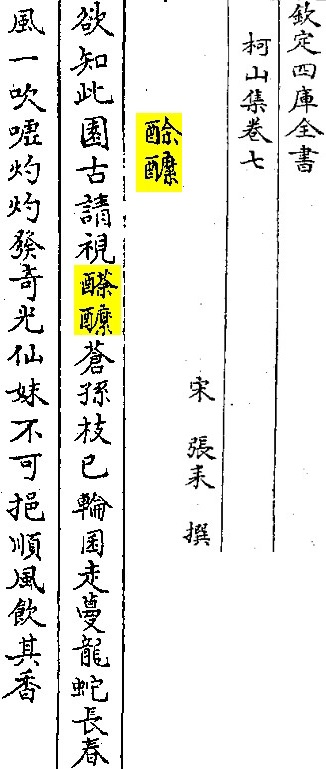 欽定四庫全書
柯山集卷七
宋 張耒 撰
酴醾
欲知此園古請視醾蒼孫枝已輪囷走蔓龍蛇長春
風一吹噓灼灼發奇光仙姝不可挹順風飲其香